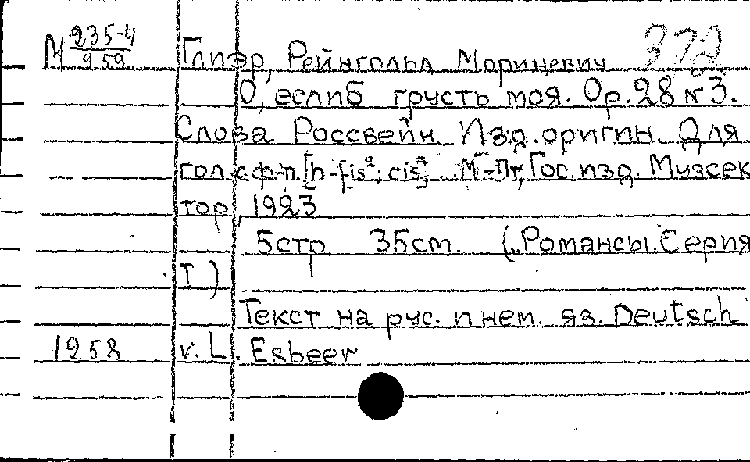 М 235-4/959 Глиэр, Рейнгольд Морицевич 372
О, еслиб грусть моя. Op. 28 № 3.
Слова Россвейн. Изд. оригин. Для
гол. с ф-п. [h-fis²; cis³] М.-Пг, Гос. изд. Музсек
тор, 1923
5стр 35см. (Романсы. Серия
I)
Текст на рус. и нем. яз. Deutsch
1958 v. L. Esbeer